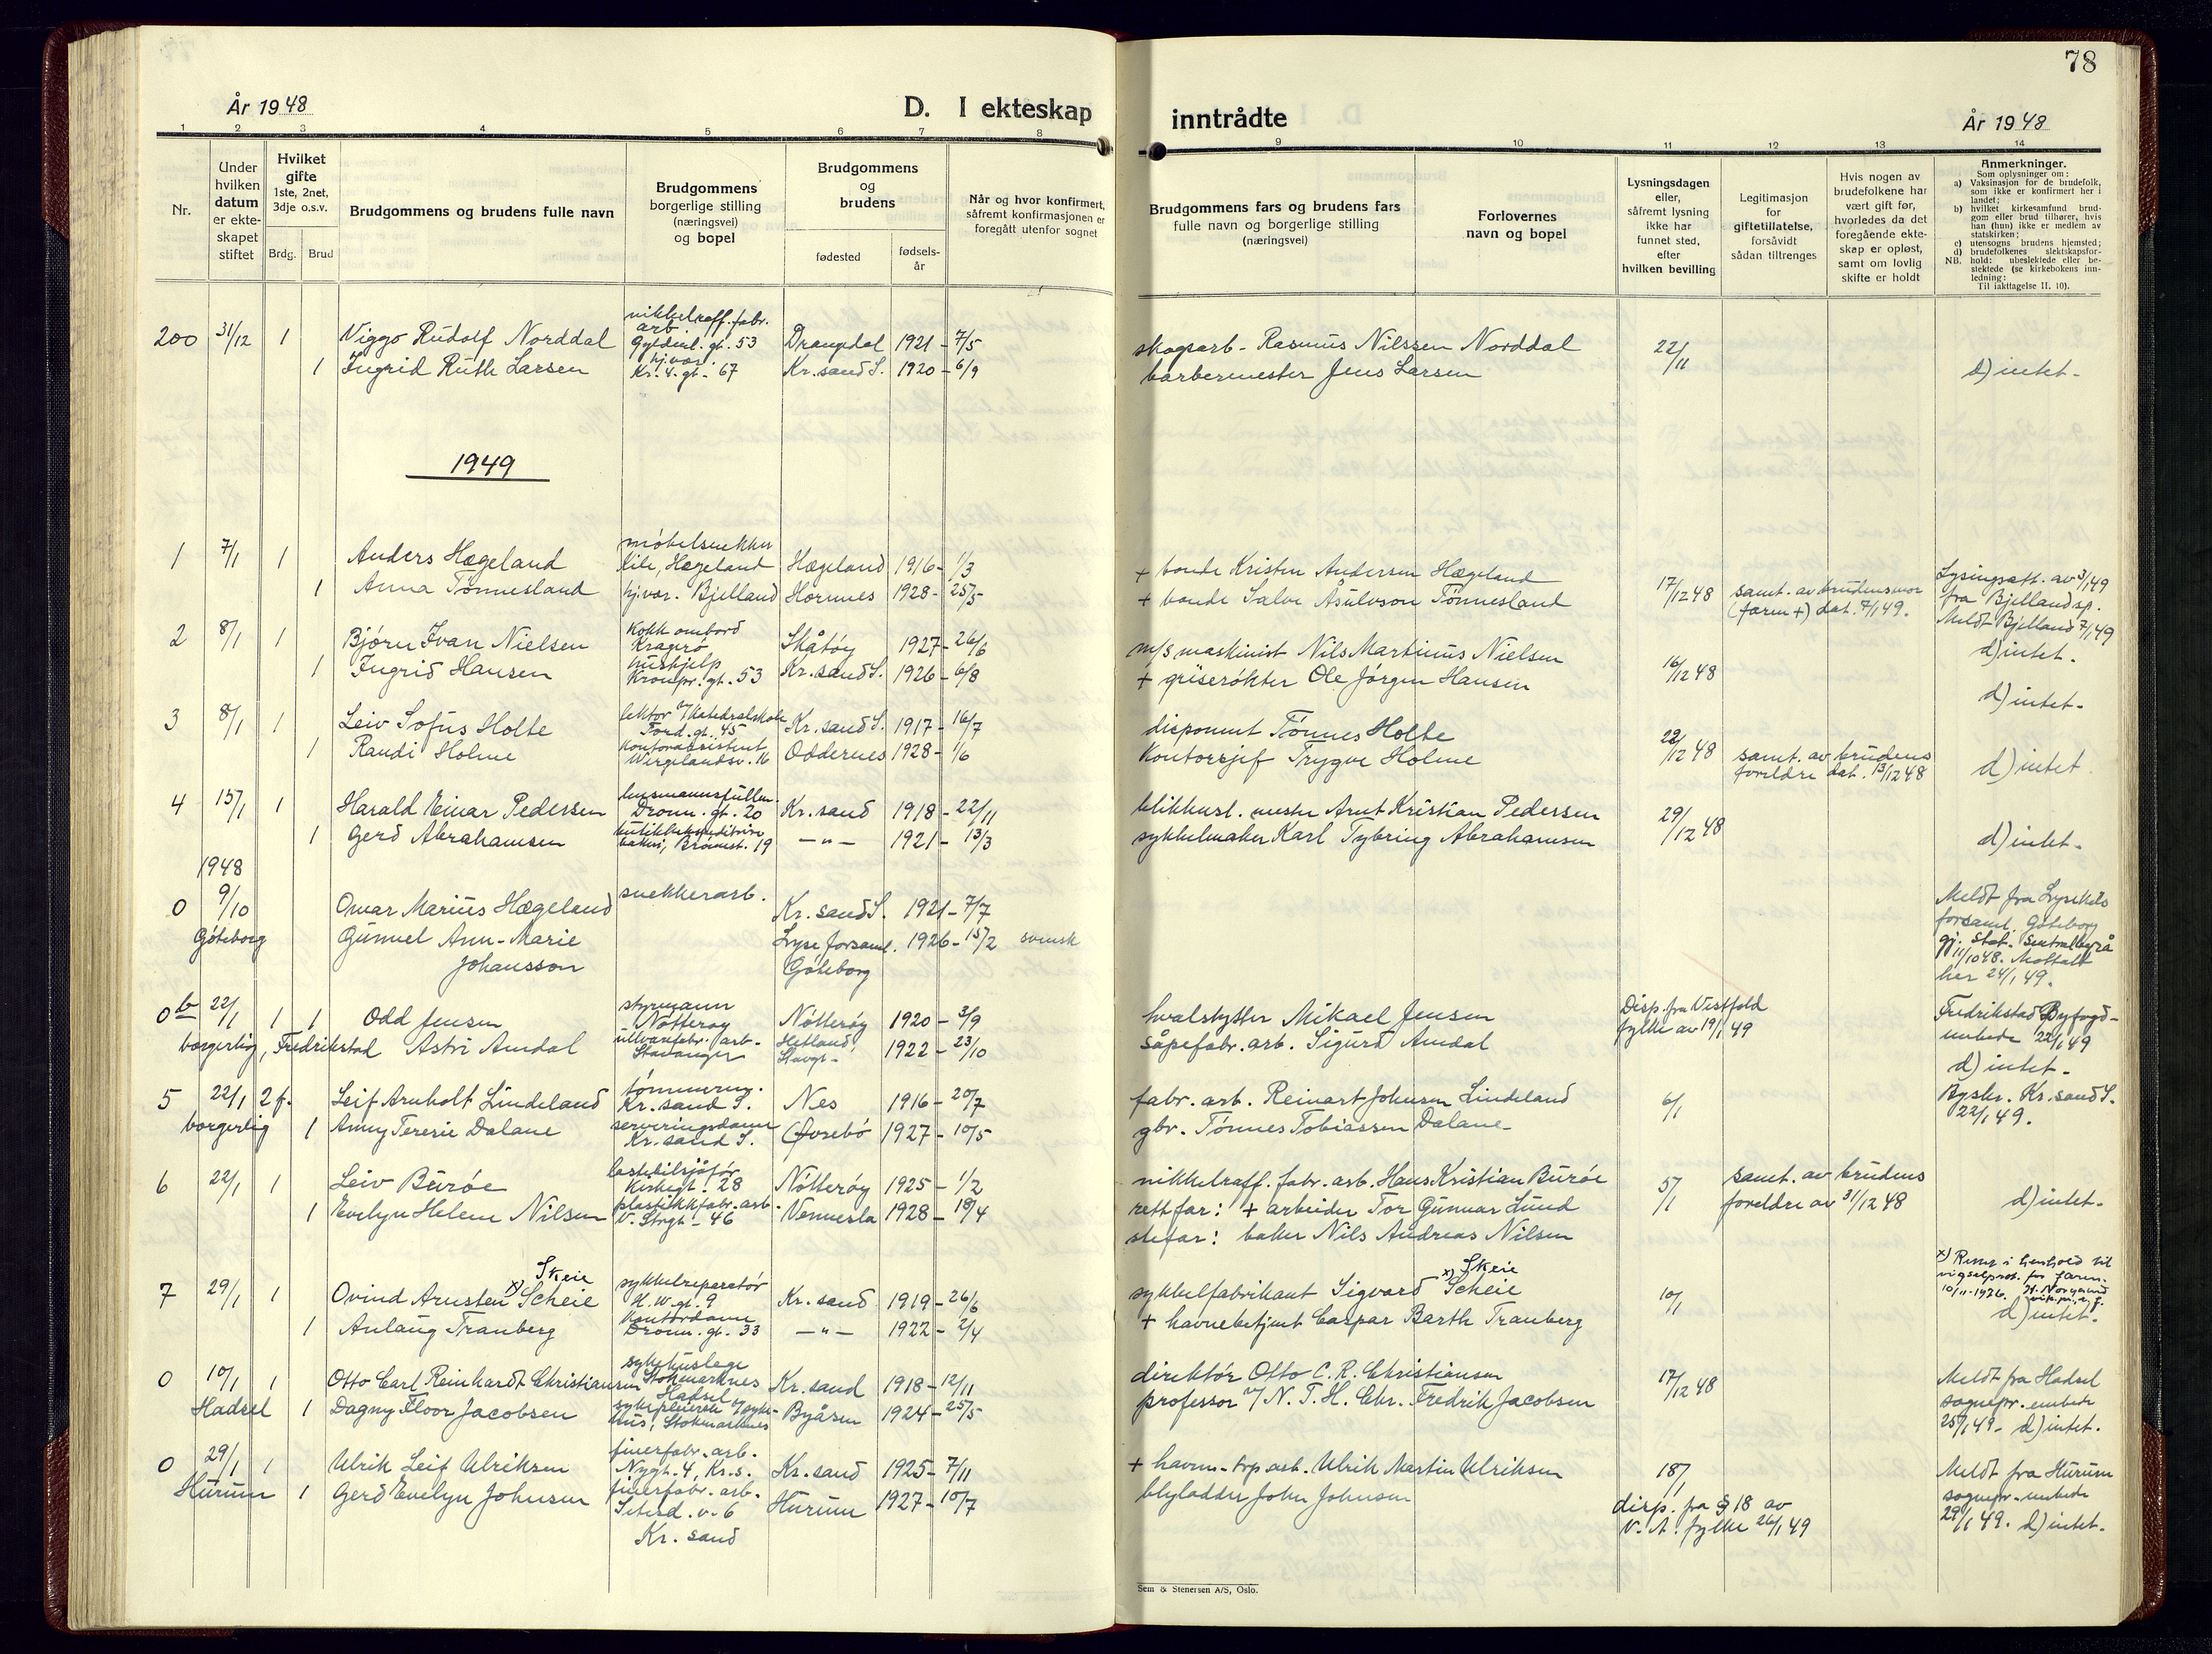 78
År 1948
D. I ekteskap
inntrådte
År 1948
1 2 3 4 5 6 7 8 9 10 11 12 13 14
Nr.
Under hvilken datum er ekte-skapet stiftet
Hvilket gifte 1ste, 2net, 3dje o.s.v.
Brdg. Brud
Brudgommens og brudens fulle navn
Brudgommens borgerlige stilling (næringsvei) og bopel
Brudgommens og brudens
fødested
fødsels-år
Når og hvor konfirmert, såfremt konfirmasjonen er foregått utenfor sognet
Brudgommens fars og brudens fars fulle navn og borgerlige stilling (næringsvei)
Forlovernes navn og bopel
Lysningsdagen eller, såfremt lysning ikke har funnet sted, efter hvilken bevilling
Legitimasjon for giftetillatelse, forsåvidt sådan tiltrenges
Hvis nogen av brudefolkene har vært gift før, hvorledes da det foregående ekte-skap er opløst, samt om lovlig skifte er holdt
Anmerkninger.
Som oplysninger om:
a) Vaksinasjon for de brudefolk, som ikke er konfirmert her i landet;
b) hvilket kirkesamfund brud-gom eller brud tilhører, hvis han (hun) ikke er medlem av statskirken;
c) utensogns brudens hjemsted;
d) brudefolkenes slektskapsfor-hold: ubeslektede eller be-slektede (se kirkebokens inn-ledning:
NB.
Til iakttagelse II, 10).
200 31/12 1 Viggo Rudolf Norddal nikkelraff. fabr. arb. Gyldenl. gt. 53 Drangedal 1921 - 7/5 skogsarb. Rasmus Nilssen Norddal 22/11
1 Ingrid Ruth Larsen hj.vær. Kr. 4. gt. 67 Kr.sand S. 1920 - 6/9 barbermester Jens Larsen d) intet.
1949
1 7/1 1 Anders Hægeland møbelsnekker Kile, Hægeland Hægeland 1916 - 1/3 + bonde Kristen Andersen Hægeland
1 Anna Tønnesland hj.vær. Bjelland Hornnes 1928 - 25/5 + bonde Salve Åsulvson Tønnesland 17/12 48 samt. av brudens mor (faren +) dat. 7/1 49. Lysingsatt. av 3/1 49 fra Bjelland sp. Meldt Bjelland 7/1 49 d) intet.
2 8/1 1 Bjørn Ivan Nielsen Kokk ombord Kragerø Skåtøy 1927 - 26/6 m/s maskinist Nils Martinius Nielsen
1 Ingrid Hansen hushjelp Kronpr. gt. 53 Kr.sand S. 1926 - 6/8 + griserøkter Ole Jørgen Hansen 16/12 48 d) intet.
3 8/1 1 Leiv Sofus Holte lektor v/Katedralskole Tord. gt. 45 Kr.sand S. 1917 - 16/7 disponent Tønnes Holte
1 Randi Holme Kontorassistent Wergelandsv. 16 Oddernes 1928 - 1/6 Kontorsjef Trygve Holme 22/12 48 samt. av brudens foreldre dat. 13/12 48 d) intet
4 15/1 1 Harald Einar Pedersen lensmannsfullm. Dronn. gt. 20 Kr.sand 1918 - 22/11 blikkensl. mester Arnt Kristian Pedersen
1 Gerd Abrahamsen Kr.sand -"- 1921 - 13/3 sykkelmaker Karl Tybring Abrahamsen 29/12 48 d) intet.
1948
0 9/10 Omar Marius Hægeland snekkerarb. Kr.sand S. 1921 - 7/7
Göteborg Gunnel Ann-Marie Johansson Lyse forsaml. Göteborg 1926 - 15/2 svensk Meldt fra Lysekils forsaml. Göteborg gj. Stat. Sentralbyrå 11/10 48. Mottatt her 24/1 49.
0b 22/1 1 1 Odd Jensen styrmann Nøtterøy Nøtterøy 1920 - 3/9 hvalskytter Mikael Jensen Disp. fra Vestfold fylke av 19/1 49 Fredrikstad Byfogd-embede 22/1 49 d) intet.
borgerlig, Fredrikstad Astri Amdal ullvarefabr. arb. Stavanger Hetland Stavgr. 1922 - 23/10 såpefabr. arb. Sigurd Amdal
5 22/1 2 f. Leif Arnholt Lindeland tømmerm. Kr. sand S. Nes 1916 - 20/7 fabr. arb. Reinart Johnsen Lindeland 6/1 Byskr. Kr.sand S. 22/1 49.
borgerlig 1 Anny Terese Dalane serveringsdame Kr. sand S. Øvsebø 1927 - 10/5 gbr. Tønnes Tobiassen Dalane
6 22/1 1 Leiv Burøe lastebilsjåfør Kirkegt. 28 Nøtterøy 1925 - 1/2 nikkelraff. fabr. arb. Hans Kristian Burøe 5/1 samt. av brudens foreldre av 31/12 48 d) intet.
1 Evelyn Helene Nilsen plastikkfabr. arb. V. Strgt. 46 Vennesla 1928 - 19/4 rett far: + arbeider Tor Gunnar Lund
stefar: baker Nils Andreas Nilsen
7 29/1 1 Ovind Arnsten x) Scheie Skeie sykkelreparatør H. W. gt. 9 Kr.sand 1919 - 26/6 sykkelfabrikant Sigvard x) Scheie Skeie 10/1 x) Rettet i henhold til vigselprot. for faren. 10/11-1976.
1 Anlaug Tranberg Kontordame Dronn. gt. 33 -"- 1922 - 2/4 + havnebetjent Caspar Barth Tranberg d) intet.
0 10/1 1 Otto Carl Reinhardt Christiansen sykehuslege Stokmarknes Hadsel Kr.sand 1918 - 12/11 direktør Otto C. R. Christiansen 17/12 48 Meldt fra Hadsel sognepr. embede 25/1 49. d) intet.
Hadsel 1 Dagny Floor Jacobsen sykepleierske v/syke-hus, Stokmarknes Byåsen 1924 - 25/5 professor v/N.T.H. Chr. Fredrik Jacobsen
0 29/1 1 Ulrik Leif Ulriksen finerfabr. arb. Nygt. 4, Kr.s. Kr.sand 1925 - 7/11 + havne-trp arb. Ulrik Martin Ulriksen 18/1 disp. fra § 18 av V. A. fylke 26/1 49 Meldt fra Hurum sognepr. embede 29/1 49. d) intet.
Hurum 1 Gerd Evelyn Johnsen finerfabr. arb. Setesd. v. 6 Kr. sand Hurum 1927 - 10/7 blyladder John Johnsen
Sem & Stenersen A/S, Oslo.